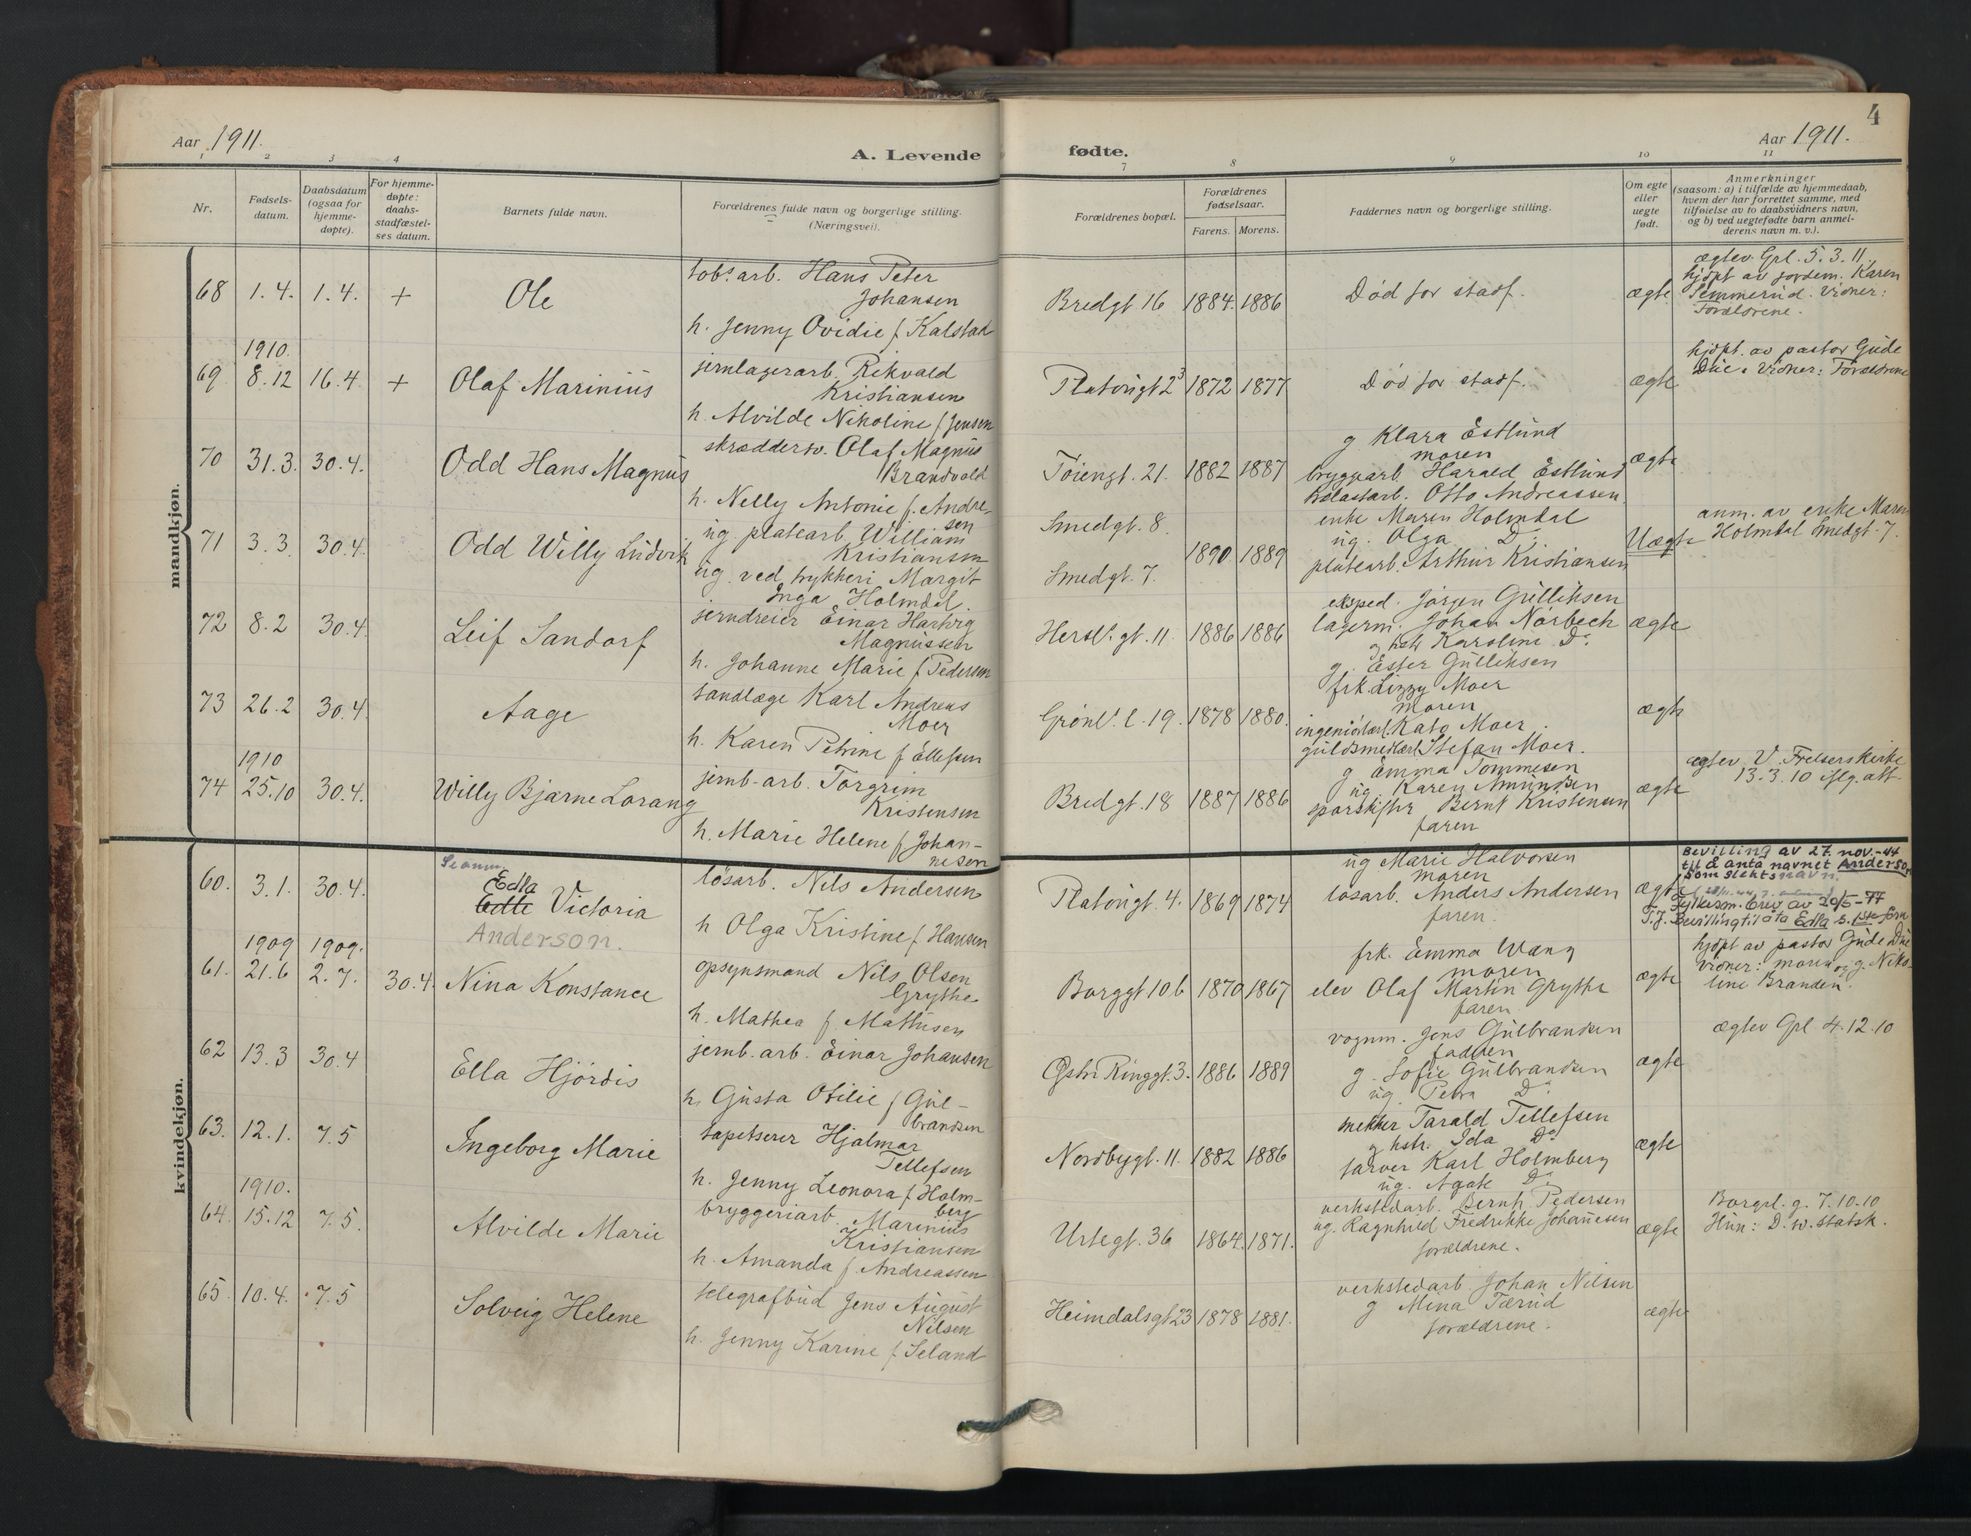 Aar 1911.
A. Levende
fødte.
Aar 1911.
4
1 2 3 4 7 8 9 10 11
Nr.
Fødsels-
datum.
Daabsdatum
(ogsaa for
hjemme-
døpte).
For hjemme-
døpte:
daabs-
stadfæstel-
ses datum.
Barnets fulde navn.
Forældrenes fulde navn og borgerlige stilling.
(Næringsvei).
Forældrenes bopæl.
Forældrenes
fødselsaar.
Farens. Morens.
Faddernes navn og borgerlige stilling.
Om egte
eller
uegte
født.
Anmerkninger
(saasom: a) i tilfælde av hjemmedaab,
hvem der har forrettet samme, med
tilføielse av to daabsvidners navn,
og b) ved uegtefødte barn anmel-
derens navn m. v.).
mandkjøn.
68 1.4. 1.4. + Ole
tobsarb. Hans Peter
Johansen
h. Jenny Ovidie f. Kalstad
Bredgt 16 1884. 1886
Død før stadf.
ægte
ægtev. Grl. 5.3.11.
hjdpt av jordem. Karen
Semmerud. Vidner:
Forældrene.
1910.
69 8.12 16.4. + Olaf Marinius
jernlagerarb. Rikvald
Kristiansen
h. Alvilde Nikoline f. Jensen
Platousgt 23 1872 1877
Død før stadf.
ægte
hjdpt. av pastor Gude
Due. Vidner: Forældrene
70 31.3. 30.4. Odd Hans Magnus
skræddersv. Olaf Magnus
Brandvold
h. Nelly Antonie f. Andre-
sen
Töiengt. 21. 1882 1887
g Klara Estlund
moren
bryggarb. Harald Estlund
Otto Andreassen.
ægte
71 3.3. 30.4. Odd Willy Ludvik
ug. platearb. William
Kristiansen
ug. ved trykkeri Margit
Inga Holmdal.
Smedgt. 8.
Smedgt. 7.
1890 1889
enke Maren Holmdal
ug. Olga Do
platearb. Arthur Kristiansen
Uægte
anm. av enke Maren
Holmdal Smedgt. 7.
72 8.2 30.4. Leif Sandorf
jerndreier Einar Hartvig
Magnussen
h. Johanne Marie f. Pedersen
Hersl. gt. 11. 1886 1886
eksped. Jørgen Gulliksen
lagerm. Johan Norbech
g hstr Karoline Do
g. Ester Gulliksen
ægte
73 26.2 30.4. Aage
tandlæge Karl Andreas
Moer
h. Karen Petrine f. Ellefsen
Grønl. l. 19. 1878 1880.
frk. Lizzy Moer
moren
Kato Moer.
Stefan Moer.
ægte
1910
74 25.10 30.4. Willy Bjarne Lorang
jernb. arb. Torgrim
Kristensen
h. Marie Helene f. Johan-
nesen
Bredgt. 18 1887 1886
g Emma Tommesen
ug. Karen Amundsen
sporskifter Bernt Kristensen
faren
ægte
ægtev V. Frelsers kirke
13.3.10 iflg. att.
kvindekjøn.
60. 3.1. 30.4.
Edla
Edle Victoria
Anderson.
løsarb. Nils Andersen
h Olga Kristine f. Hansen
Platousgt. 4. 1869 1874
ug Marie Halvorsen
moren
løsarb. Anders Andersen
faren.
ægte
Bevilling av 27. nov.-44
til å anta navnet Anderson
som slektsnavn.
Fylkesm. brev av 20/5-77
1909 1909.
61. 21.6 2.7. 30.4. Nina Konstance
opsynsmand Nils Olsen
Grythe
h. Mathea f. Mathisen
Borggt 10b 1870 1867
frk. Emma Wang
moren
elev Olaf Martin Grythe
faren.
ægte
hjdpt av pastor Gude Due
vidner: moren og g. Niko-
line Branden.
62 13.3 30.4 Ella Hjördis
jernb. arb. Einar Johansen
h. Gusta Otilie f. Gul-
brandsen
Østre Ringgt. 3. 1886 1889
vognm. Jens Gulbrandsen
g. Sofie Gulbrandsen
ug. Petra Do
ægte
ægtev Grl 4.12.10
63. 12.1. 7.5 Ingeborg Marie
tapetserer Hjalmar
Tellefsen
h. Jenny Leonora f. Holm-
berg
Nordbygt. 11. 1882 1886
snekker Tarald Tellefsen
g hstr. Ida Do
farver Karl Holmberg
ug. Agate Do
ægte
1910.
64. 15.12 7.5. Alvilde Marie
bryggeriarb. Marinius
Kristiansen
h. Amanda f. Andreassen
Urtegt. 36 1864. 1871.
verkstedarb. Bernh. Pedersen
ug. Ragnhild Fredrikke Johannesen
forældrene.
ægte
Borgerl. g. 7.10.10
Hun: D. w. statsk.
65. 10.4. 7.5 Solveig Helene
telegrafbud Jens August
Nilsen
h. Jenny Karine f. Seland
Heimdalsgt 23 1878 1881.
verkstedarb Johan Nilsen
g Mina Tærud
forældrene.
ægte